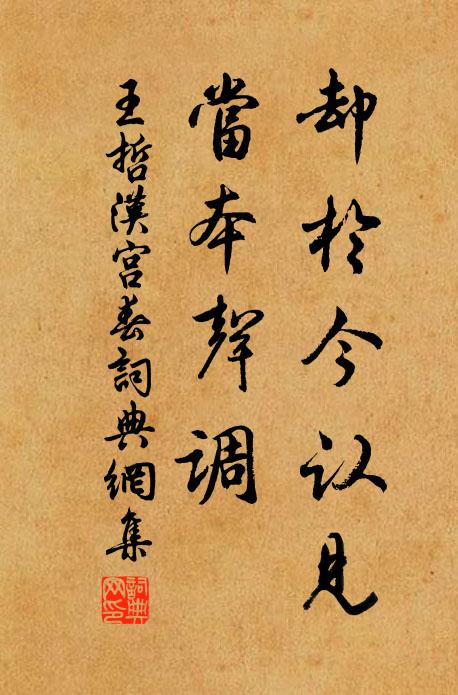 却於今认見
當本聲调
王哲漢宮春詞典網集
詞典网印